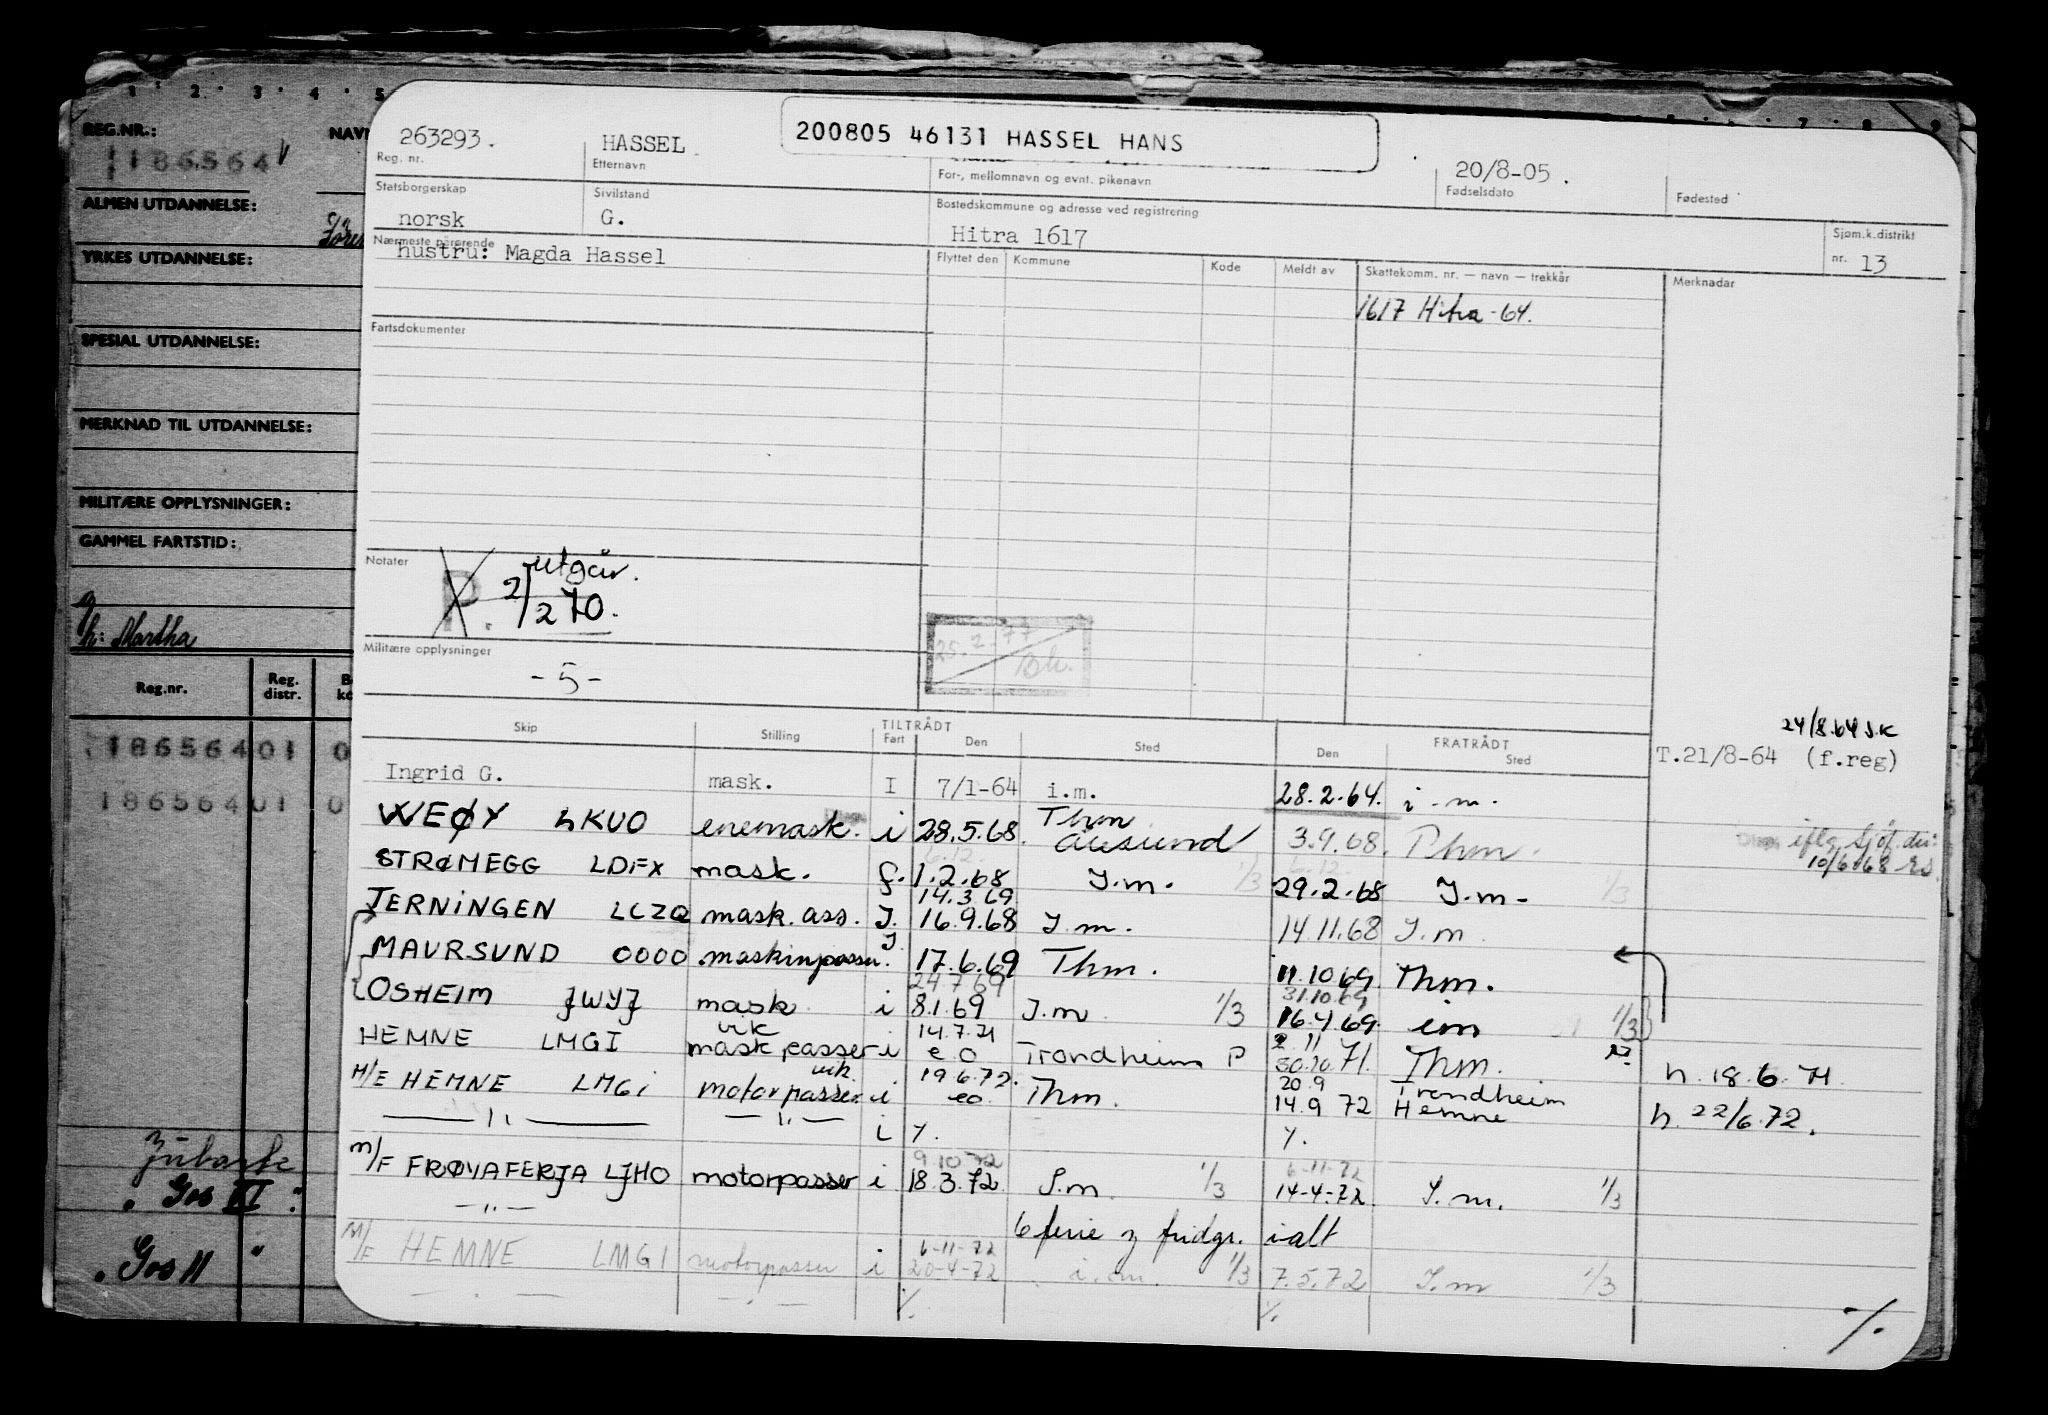 1 2 3 4 5 7 8 9
REG.NR.: NAVN
186564
ALMEN UTDANNELSE:
YRKES UTDANNELSE:
SPESIAL UTDANNELSE:
MERKNAD TIL UTDANNELSE:
MILITÆRE OPPLYSNINGER:
GAMMEL FARTSTID:
h: Martha
Reg.nr. Reg. distr.
186564 01 0
186564 01 0
Gos II
263293. HASSEL 200805 46131 HASSEL HANS 20/8-05.
Reg. nr. Etternavn For-, mellomnavn og evnt. pikenavn Fødselsdato Fødested
Statsborgerskap Sivilstand Bostedskommune og adresse ved registrering
norsk G. Hitra 1617 Sjøm.k.distrikt nr. 13
Nærmeste pårørende
hustru: Magda Hassel
Flyttet den Kommune Kode Meldt av Skattekomm. nr. — navn — trekkår Merknadar
1617 Hitra -64.
Fartsdokumenter
Notater P. utgår.
2/2 70.
25.2.77
Militære opplysninger
- 5 -
TILTRÅDT FRATRÅDT
Skip Stilling Fart Den Sted Den Sted
24/8.64 J.K
T.21/8-64 (f.reg)
Ingrid G. mask. I 7/1-64 i.m. 28.2.64. i.m.
VEØY LKUO enemask. i 28.5.68. Thm Ålesund 3.9.68. Thm. iflg Sjøf.dir: 10/6.68
6.12. 6.12.
STRØMEGG LDFX mask. f. 1.2.68 J.m. 1/3 29.2.68 J.m. 1/3
14.3.69
TERNINGEN LCZQ mask.ass. J. 16.9.68 J.m. 14.11.68 J.m
MAURSUND 0000 maskinpasser. J 17.6.69 Thm. 11.10.69 Thm.
24.7.69 31.10.69
OSHEIM JWYJ mask. i 8.1.69 J.m 1/3 16.4.69. im 1/3
HEMNE LMGI vik mask passer i 14.7.71 e.o Trondheim P 2.11 30.10.71. Thm. h. 18.6.71
M/F HEMNE LMGI vik. motorpasser i 19.6.72. eo Thm. 20.9 14.9 72 Trondheim Hemne h. 22/6.72.
— " — — " — i y. y.
9 10 72 6-11-72
M/F FRØYAFERJA LJHO motorpasser i 18.3.72. J.m. 1/3 14-4-72. J.m. 1/3
— " —
6 ferie og fridgr. ialt
6-11-72
M/F HEMNE LMGI motorpasser i 20-4-72 i.m. 1/3 7.5.72 J.m 1/3
%. %. %.